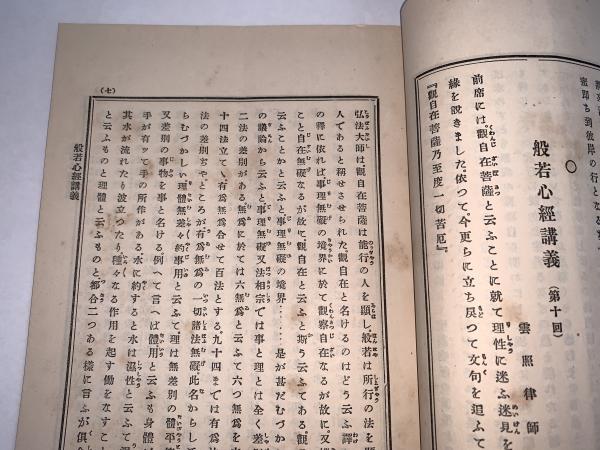 密即ち到彼岸の行となる
般若心經講義(第十回)
雲照律師
前席には觀自在菩薩と云ふことに就て理性に迷ふ迷見を
緣を說きました、依つて今更らに立ち戾つて文句を追ふて
『觀自在菩薩乃至度一切苦厄』
弘法大師は觀自在菩薩は能行の人を顯し、般若は所行の法を顯
人であると稱せさせられた、觀自在と名けるのはどう云ふ譯
の釋に依れば事理無礙の境界に於て觀察自在なるが故に、又
こと自在無礙なるが故に觀自在と斯う云ふてある、觀
云ふことかと云ふと事理無礙の境界……是が甚だむづか
の議論から云ふと事理無礙又法相宗では事と理とは全く差
二法の差別がある無爲に於ては六無爲と云ふて六つ無爲を
十四法立て、有爲無爲合せて百法とする、九十四までは有爲
法の差別ぢや、ところが有爲無爲の一切諸法無礙、此名からして
らむづかしい理體無差々約事用と云ふて、理は無差別の體平
又差別の事物を事と名ける例へて言へば體用と云ふも身體
手が有ッて手の所作がある水に約すると水は濕性と云ふて濕
其水が流れたり波立つたり種々なる作用を起す働をなすこ
と云ふものと理體と云ふものと都合二つある樣に言ふが俱
般若心經講義
(七)